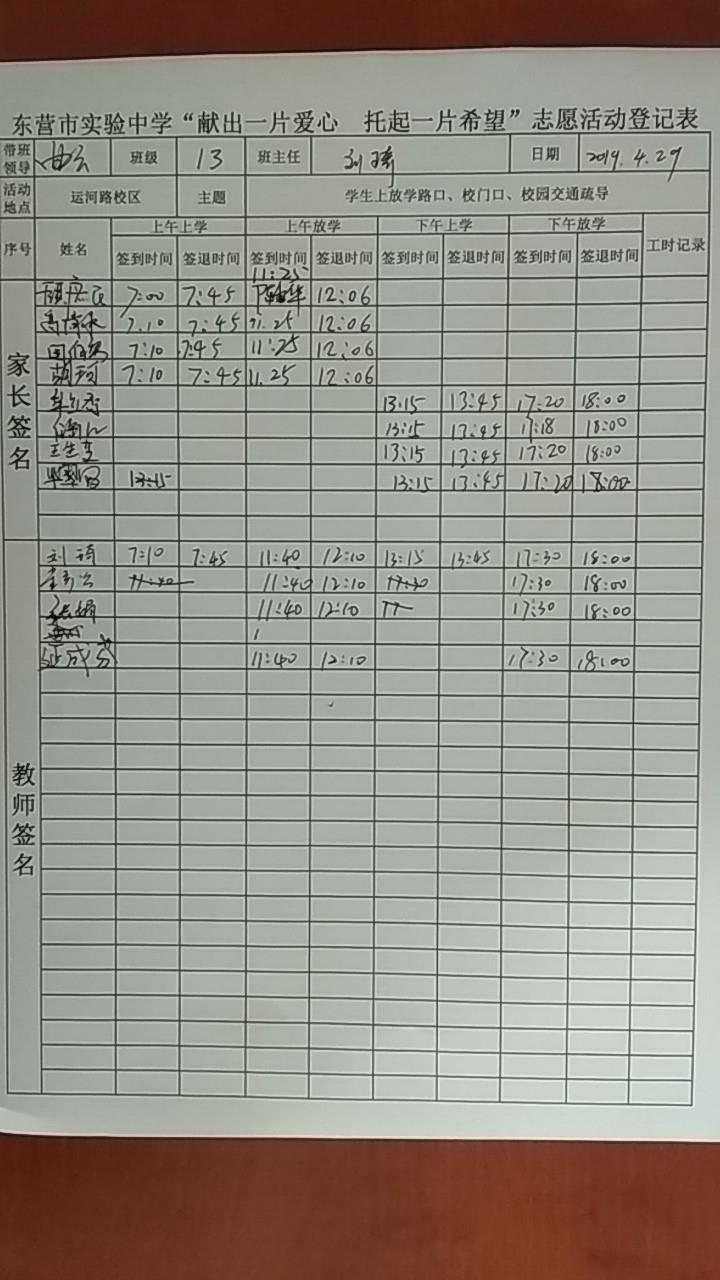 东营市实验中学“献出一片爱心 托起一片希望”志愿活动登记表
带班领导 班级 13 班主任 刘琦 日期 2019.4.29
活动地点 运河路校区 主题 学生上放学路口、校门口、校园交通疏导
序号 姓名 上午上学 上午放学 下午上学 下午放学 工时记录
签到时间 签退时间 签到时间 签退时间 签到时间 签退时间 签到时间 签退时间
家长签名
7:00 7:45 11:25 12:06
7:10 7:45 11:25 12:06
7:10 7:45 11:25 12:06
胡珂 7:10 7:45 11.25 12:06
13:15 13:45 17:20 18:00
13:15 13:45 17:18 18:00
13:15 13:45 17:20 18:00
13:15 13:15 13:45 17:20 18:00
教师签名
刘琦 7:10 7:45 11:40 12:10 13:15 13:45 17:30 18:00
11:40 11:40 12:10 17:30 17:30 18:00
11:40 12:10 17 17:30 18:00
11:40 12:10 17:30 18:00